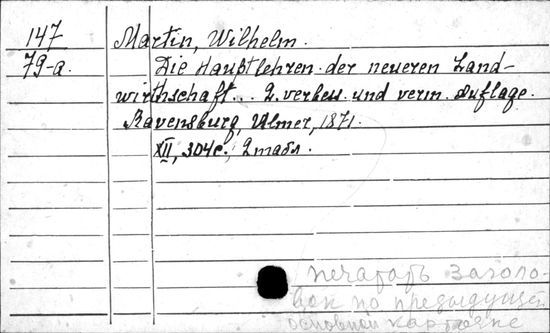 147 Martin, Wilhelm.
79-a. Die Hauptlehren der neueren Land-
wirthschaft... 2. verbess. und verm. Auflage.
Ravensburg, Ulmer, 1871.
XII, 304 с., 2 табл.
печатать заголо-
вок по предыдущей
основной карточке